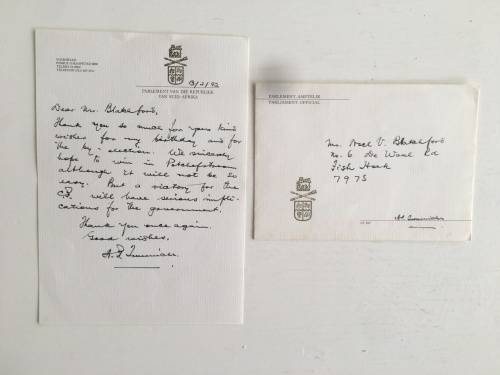 VOLKSRAAD
13/2/92
PARLEMENT VAN DIE REPUBLIEK
VAN SUID-AFRIKA
Dear Mr. Blakeford,
Thank you so much for your kind
wishes for my birthday and for
the by-election. We sincerely
hope to win in Potchefstroom
although it will not be so
easy. But a victory for the
C.P. will have serious impli-
cations for the government.
Thank you once again.
Good wishes.
A.P. Treurnicht.
PARLEMENT, AMPTELIK
PARLIAMENT, OFFICIAL
Mr. Noel V. Blakeford
No. 6 De Waal Rd
Fish Hoek
7975
A.P. Treurnicht